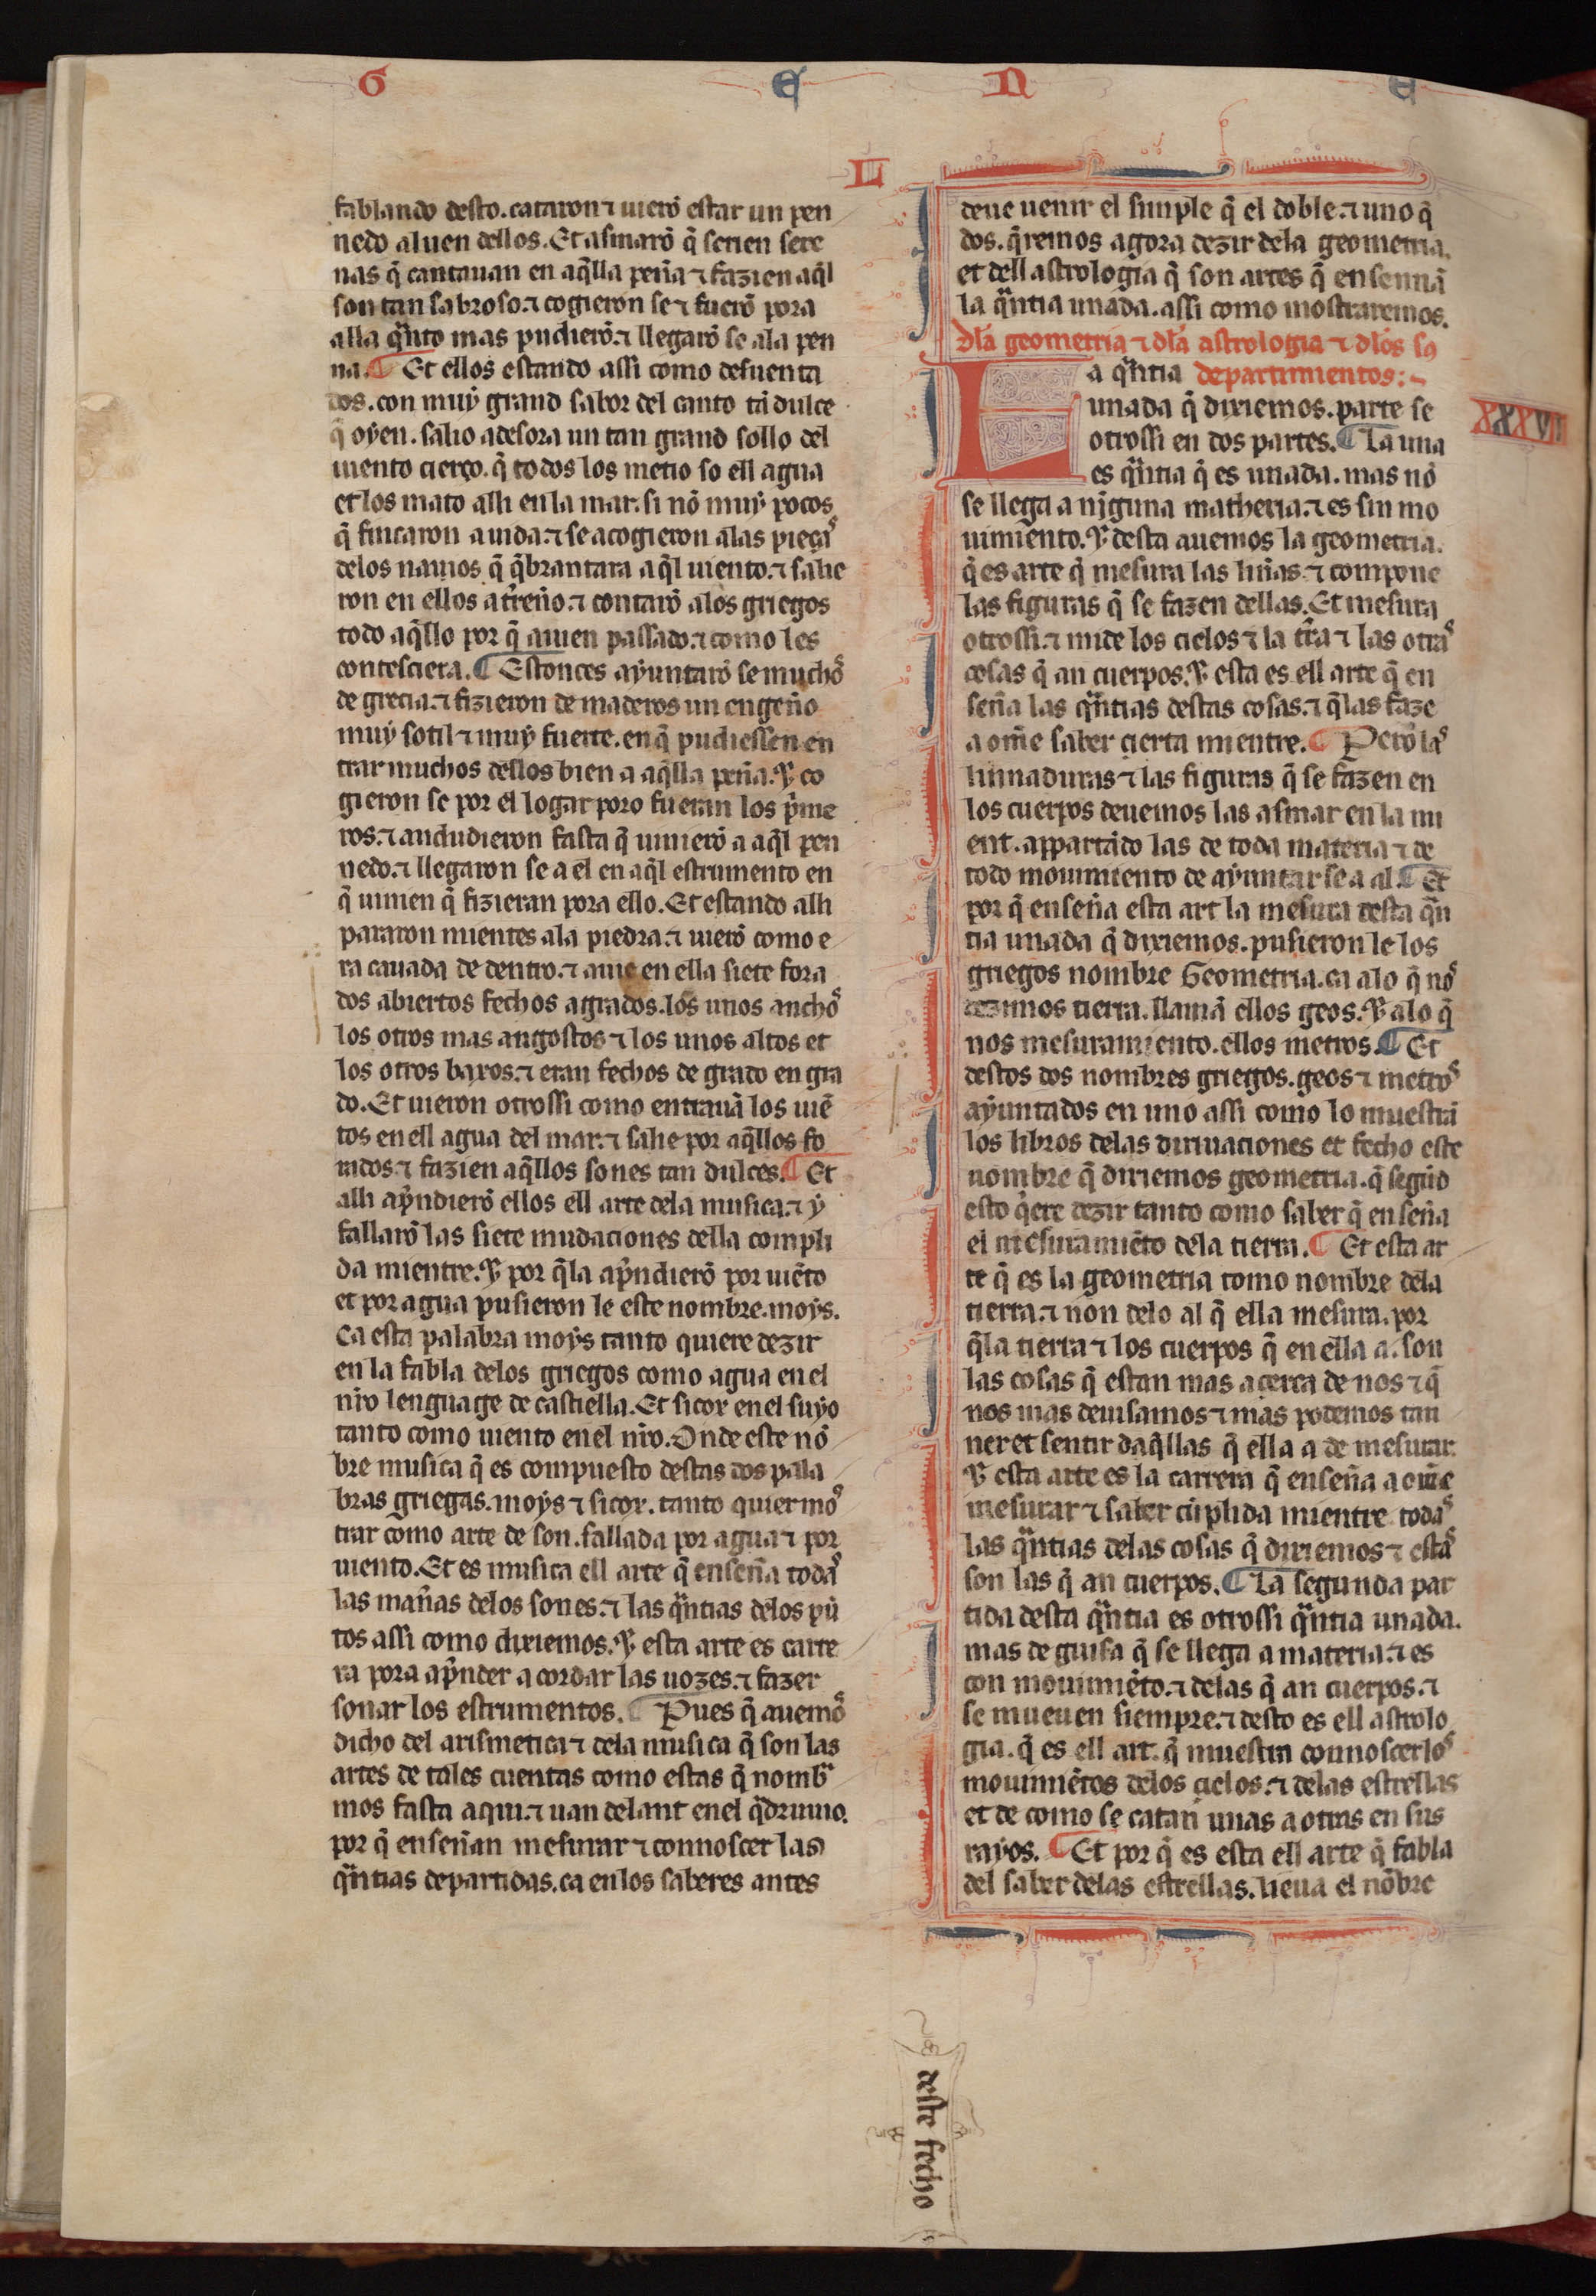 G E N E
L
fablando desto. cataron ⁊ uierõ estar un pen
nedo aluen dellos. Et asmarõ q̃ serien sere
nas q̃ cantauan en aq̃lla peña ⁊ fazien aq̃l
son tan sabroso. ⁊ cogieron se ⁊ fuerõ pora
alla q̃nto mas pudierõ. ⁊ llegarõ se ala pen
na. ¶ Et ellos estando assi como desuenta
dos. con muẏ grand sabor del canto tã dulce
q̃ oẏen. salio adesora un tan grand sollo del
uiento cierço. q̃ todos los metio so ell agua
et los mato alli en la mar. si nõ muẏ pocos
q̃ fincaron auida. ⁊ se acogieron alas pieças
delos nauios q̃ q̃brantara aq̃l uiento. ⁊ salie
ron en ellos a tr̃eño. ⁊ contarõ alos griegos
todo aq̃llo por q̃ auien passado. ⁊ como les
contesciera. ¶ Estonces aẏuntarõ se muchos
de grecia. ⁊ fizieron de maderos un engeño
muẏ sotil ⁊ muẏ fuerte. en q̃ pudiessen en
trar muchos dellos bien a aq̃lla peña. ⁊ co
gieron se por el logar poro fueran los p̃me
ros. ⁊ andudieron fasta q̃ uinierõ a aq̃l pen
nedo. ⁊ llegaron se a el en aq̃l estrumento en
q̃ uinien q̃ fizieran pora ello. Et estando alli
pararon mientes ala piedra. ⁊ uierõ como e
ra cauada de dentro. ⁊ auie en ella siete fora
dos abiertos fechos agrados. los unos anchos
los otros mas angostos ⁊ los unos altos et
los otros baxos. ⁊ eran fechos de grado en gra
do. Et uieron otrossi como entrauã los uiẽ
tos en ell agua del mar. ⁊ salie por aq̃llos fo
rados. ⁊ fazien aq̃llos sones tan dulces. ¶ Et
alli ap̃ndierõ ellos ell arte dela musica. ⁊ ẏ
fallarõ las siete mudaciones della compli
da mientre. ⁊ por q̃ la ap̃ndierõ por uiẽto
et por agua pusieron le este nombre. moẏs.
Ca esta palabra moẏs tanto quiere dezir
en la fabla delos griegos como agua en el
nr̃o lenguage de castiella. Et sicox en el suẏo
tanto como uiento en el nr̃o. Onde este nõ
bre musica q̃ es compuesto destas dos pala
bras griegas. moẏs ⁊ sicox. tanto quier mos
trar como arte de son. fallada por agua ⁊ por
uiento. Et es musica ell arte q̃ enseña todas
las mañas delos sones. ⁊ las q̃ntias delos pũ
tos assi como dixiemos. ⁊ esta arte es carre
ra pora ap̃nder a cordar las uozes. ⁊ fazer
sonar los estrumentos. ¶ Pues q̃ auemos
dicho del arismetica ⁊ dela musica q̃ son las
artes de tales cuentas como estas q̃ nomb̃
mos fasta aqui. ⁊ uan delant en el q̃druuio.
por q̃ enseñan mesurar ⁊ connoscer las
q̃ntias departidas. ca en los saberes antes
deue uenir el simple q̃ el doble. ⁊ uno q̃
dos. q̃remos agora dezir dela geometria.
et dell astrologia q̃ son artes q̃ ensennã
la q̃ntia unada. assi como mostraremos.
Dl̃a geometria ⁊ dl̃a astrologia ⁊ dl̃os sꝯ
departimientos:
La q̃ntia
unada q̃ dixiemos. parte se
otrossi en dos partes. ¶ La una
es q̃ntia q̃ es unada. mas nõ
se llega a njguna matheria. ⁊ es sin mo
uimiento. ⁊ desta auemos la geometria.
q̃ es arte q̃ mesura las liñas. ⁊ compone
las figuras q̃ se fazen dellas. Et mesura
otrossi. ⁊ mide los cielos ⁊ la tr̃a ⁊ las otras
cosas q̃ an cuerpos. ⁊ esta es ell arte q̃ en
seña las q̃ntias destas cosas. ⁊ q̃ las faze
a om̃e saber cierta mientre. ¶ Pero las
linnaduras ⁊ las figuras q̃ se fazen en
los cuerpos deuemos las asmar en la mi
ent. appartãdo las de toda materia ⁊ de
todo mouimiento de aẏuntar se a al. ¶ Et
por q̃ enseña esta art la mesura desta q̃n
tia unada q̃ dixiemos. pusieron le los
griegos nombre Geometria. ca alo q̃ nos
dezimos tierra. llamã ellos geos. ⁊ alo q̃
nos mesuramiento. ellos metros. ¶ Et
destos dos nombres griegos. geos ⁊ metros
aẏuntados en uno assi como lo muestrã
los libros delas diriuaciones et fecho este
nombre q̃ dixiemos geometria. q̃ segũd
esto q̃ere dezir tanto como saber q̃ enseña
el mesuramiẽto dela tierra. ¶ Et esta ar
te q̃ es la geometria tomo nombre dela
tierra. ⁊ non delo al q̃ ella mesura. por
q̃ la tierra ⁊ los cuerpos q̃ en ella a. son
las cosas q̃ estan mas acerca de nos ⁊ q̃
nos mas deuisamos ⁊ mas podemos tan
ner et sentir daq̃llas q̃ ella a de mesurar.
⁊ esta arte es la carrera q̃ enseña a om̃e
mesurar ⁊ saber cũplida mientre todas
las q̃ntias delas cosas q̃ dixiemos ⁊ estas
son las q̃ an cuerpos. ¶ La segunda par
tida desta q̃ntia es otrossi q̃ntia unada.
mas de guisa q̃ se llega a materia. ⁊ es
con mouimiẽto. ⁊ delas q̃ an cuerpos. ⁊
se mueuen siempre. ⁊ desto es ell astrolo
gia. q̃ es ell art. q̃ muestra connoscer los
mouimiẽtos delos cielos. ⁊ delas estrellas
et de como se catan unas a otras en sus
raẏos. ¶ Et por q̃ es esta ell arte q̃ fabla
del saber delas estrellas. lieua el nõbre
deste fecho